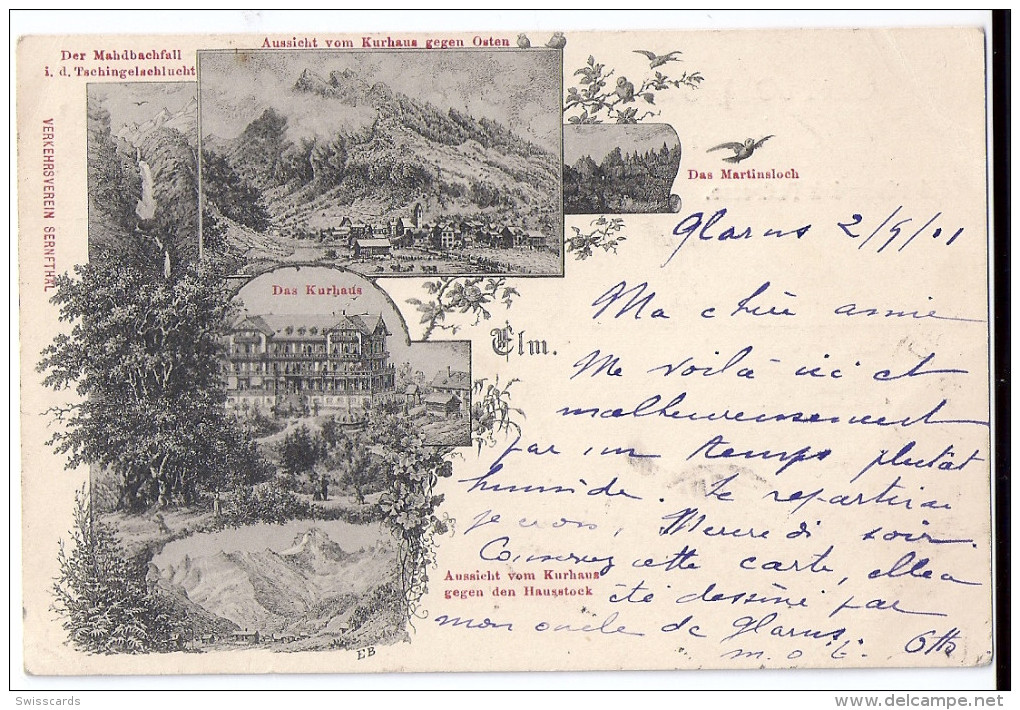 Der Mahdbachfall
i. d. Tschingelschlucht
Aussicht vom Kurhaus gegen Osten
VERKEHRSVEREIN SERNFTHAL
Das Martinsloch
Das Kurhaus
Elm.
Glarus 2/9/01
Ma chère amie
Me voilà ici et
malheureusement
par un temps plutôt
humide. Je repartirai
je crois, Mercredi soir.
Conservez cette carte, elle a
été dessiné par
mon oncle de Glarus.
Otto
Aussicht vom Kurhaus
gegen den Hausstock
EB
Swisscards
delcampe.net